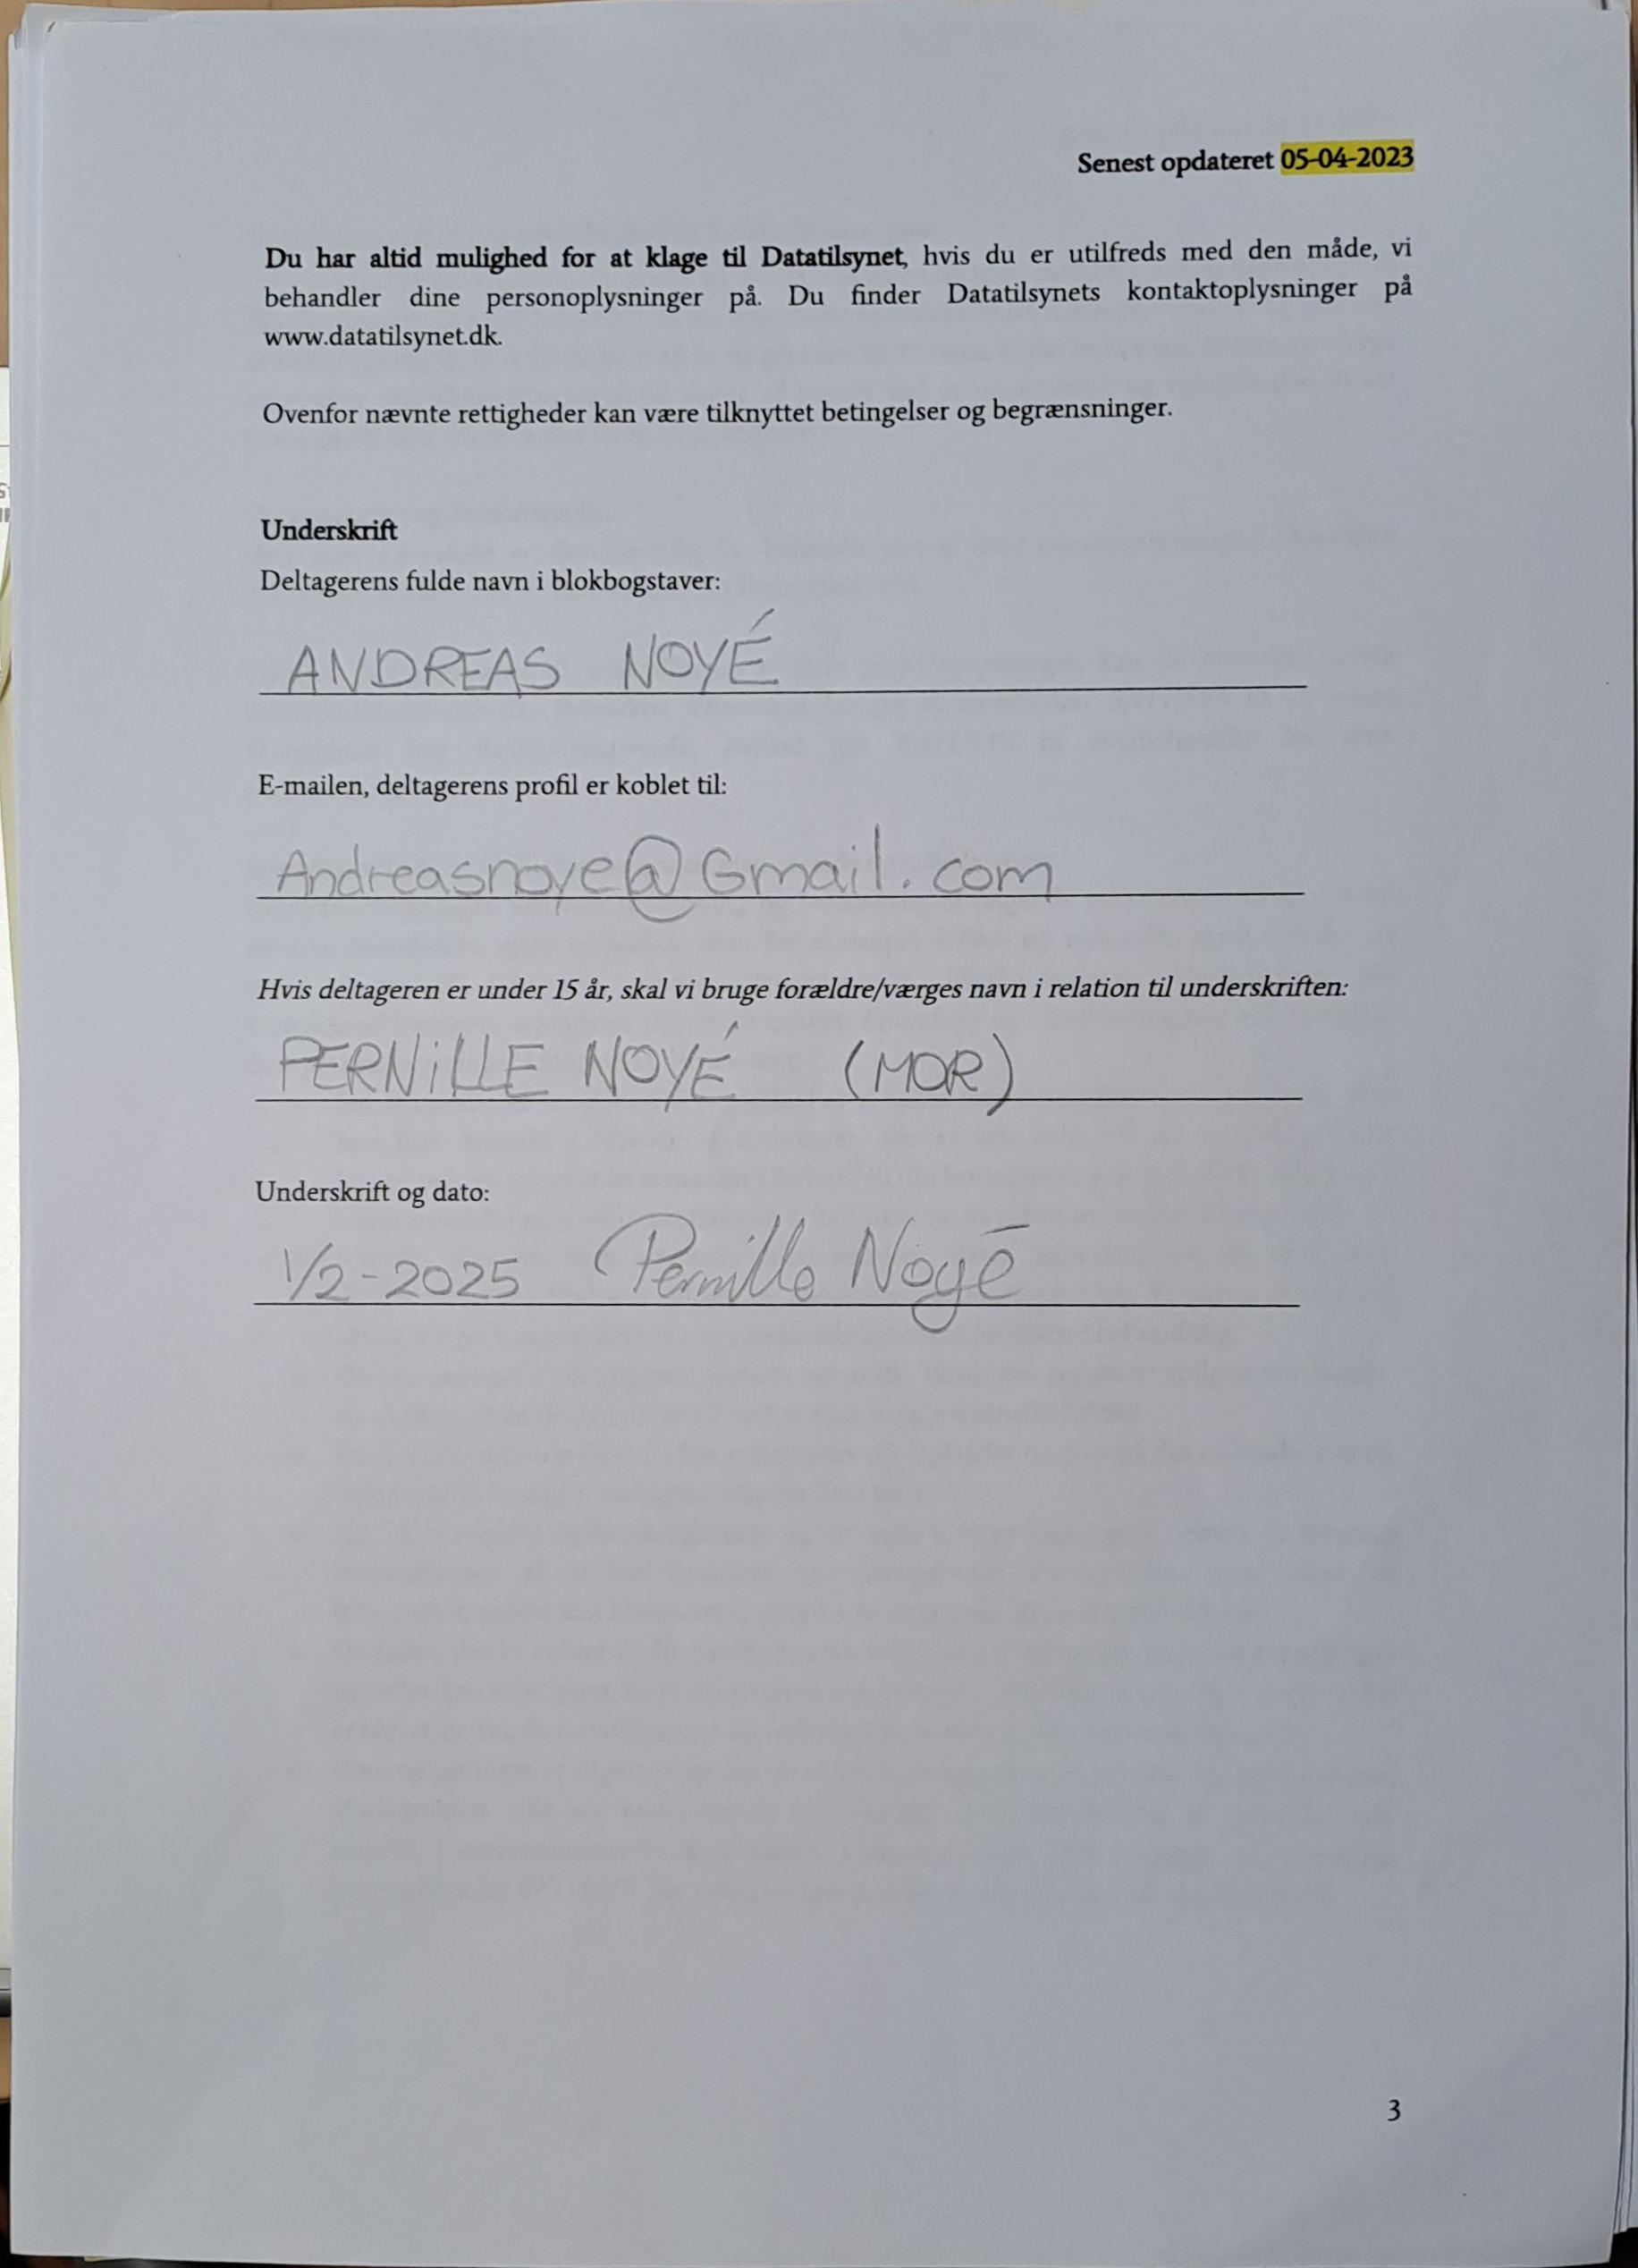 Senest opdateret 05-04-2023
Du har altid mulighed for at klage til Datatilsynet, hvis du er utilfreds med den måde, vi
behandler dine personoplysninger på. Du finder Datatilsynets kontaktoplysninger på
www.datatilsynet.dk.
Ovenfor nævnte rettigheder kan være tilknyttet betingelser og begrænsninger.
Underskrift
Deltagerens fulde navn i blokbogstaver:
ANDREAS NOYÉ
E-mailen, deltagerens profil er koblet til:
Andreasnoye@Gmail.com
Hvis deltageren er under 15 år, skal vi bruge forældre/værges navn i relation til underskriften:
PERNiLLE NOYÉ (MOR)
Underskrift og dato:
1/2-2025 Pernille Noyé
3